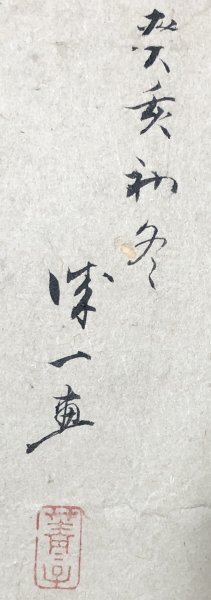 癸亥初冬
誠一画